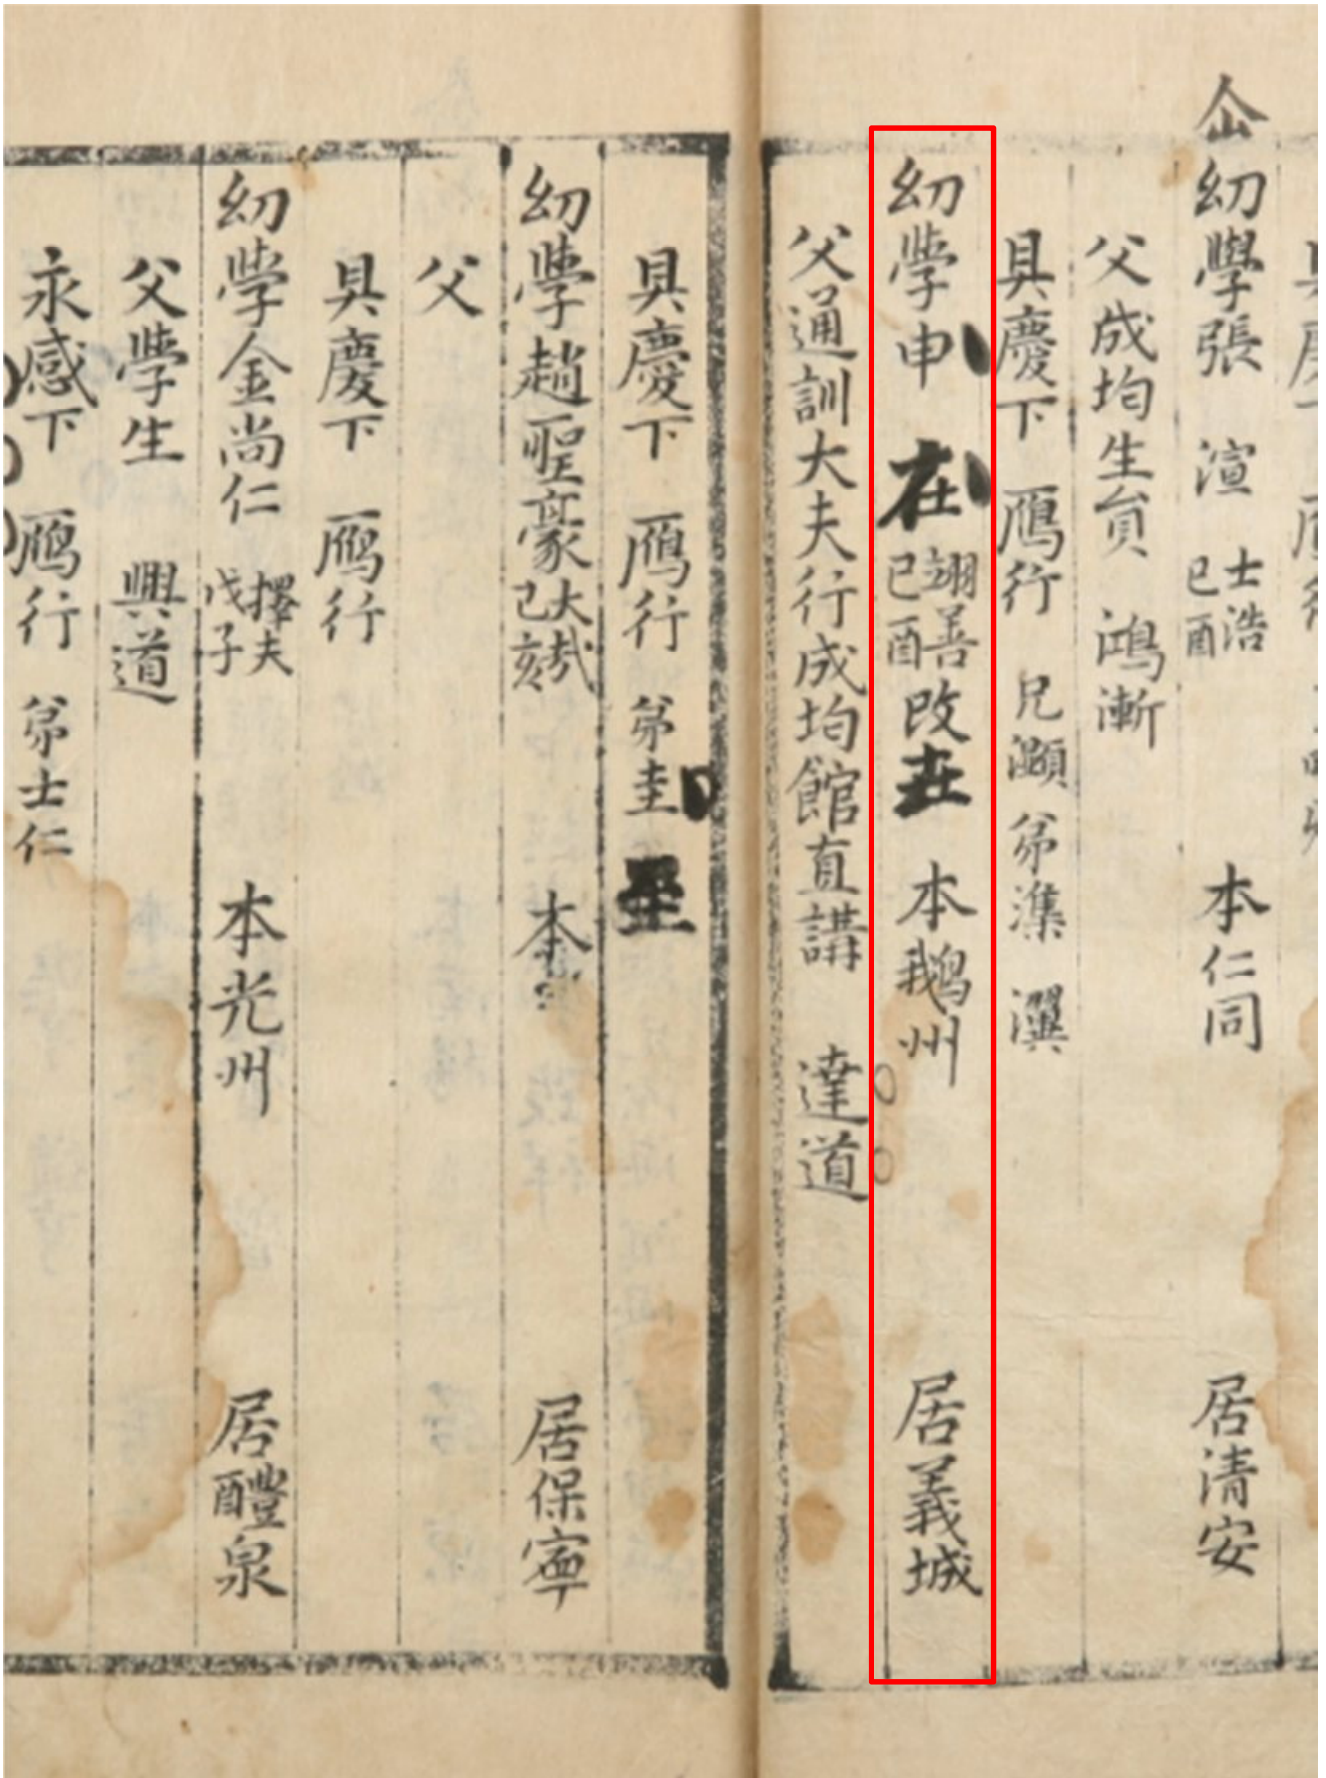 仚 幼學張 渲 士浩 己酉 本仁同 居清安
父成均生員 鴻漸
具慶下 鴈行 兄灝 弟潗
幼學申 在 翊善 己酉 改 本鵝州 居義城
父通訓大夫行成均館直講 達道
具慶下 鴈行 弟圭
幼學趙聖豪 大哉 己亥 本 居保寧
父
具慶下 鴈行
幼學金尚仁 擇夫 戊子 本光州 居醴泉
父學生 興道
永感下 鴈行 弟士仁